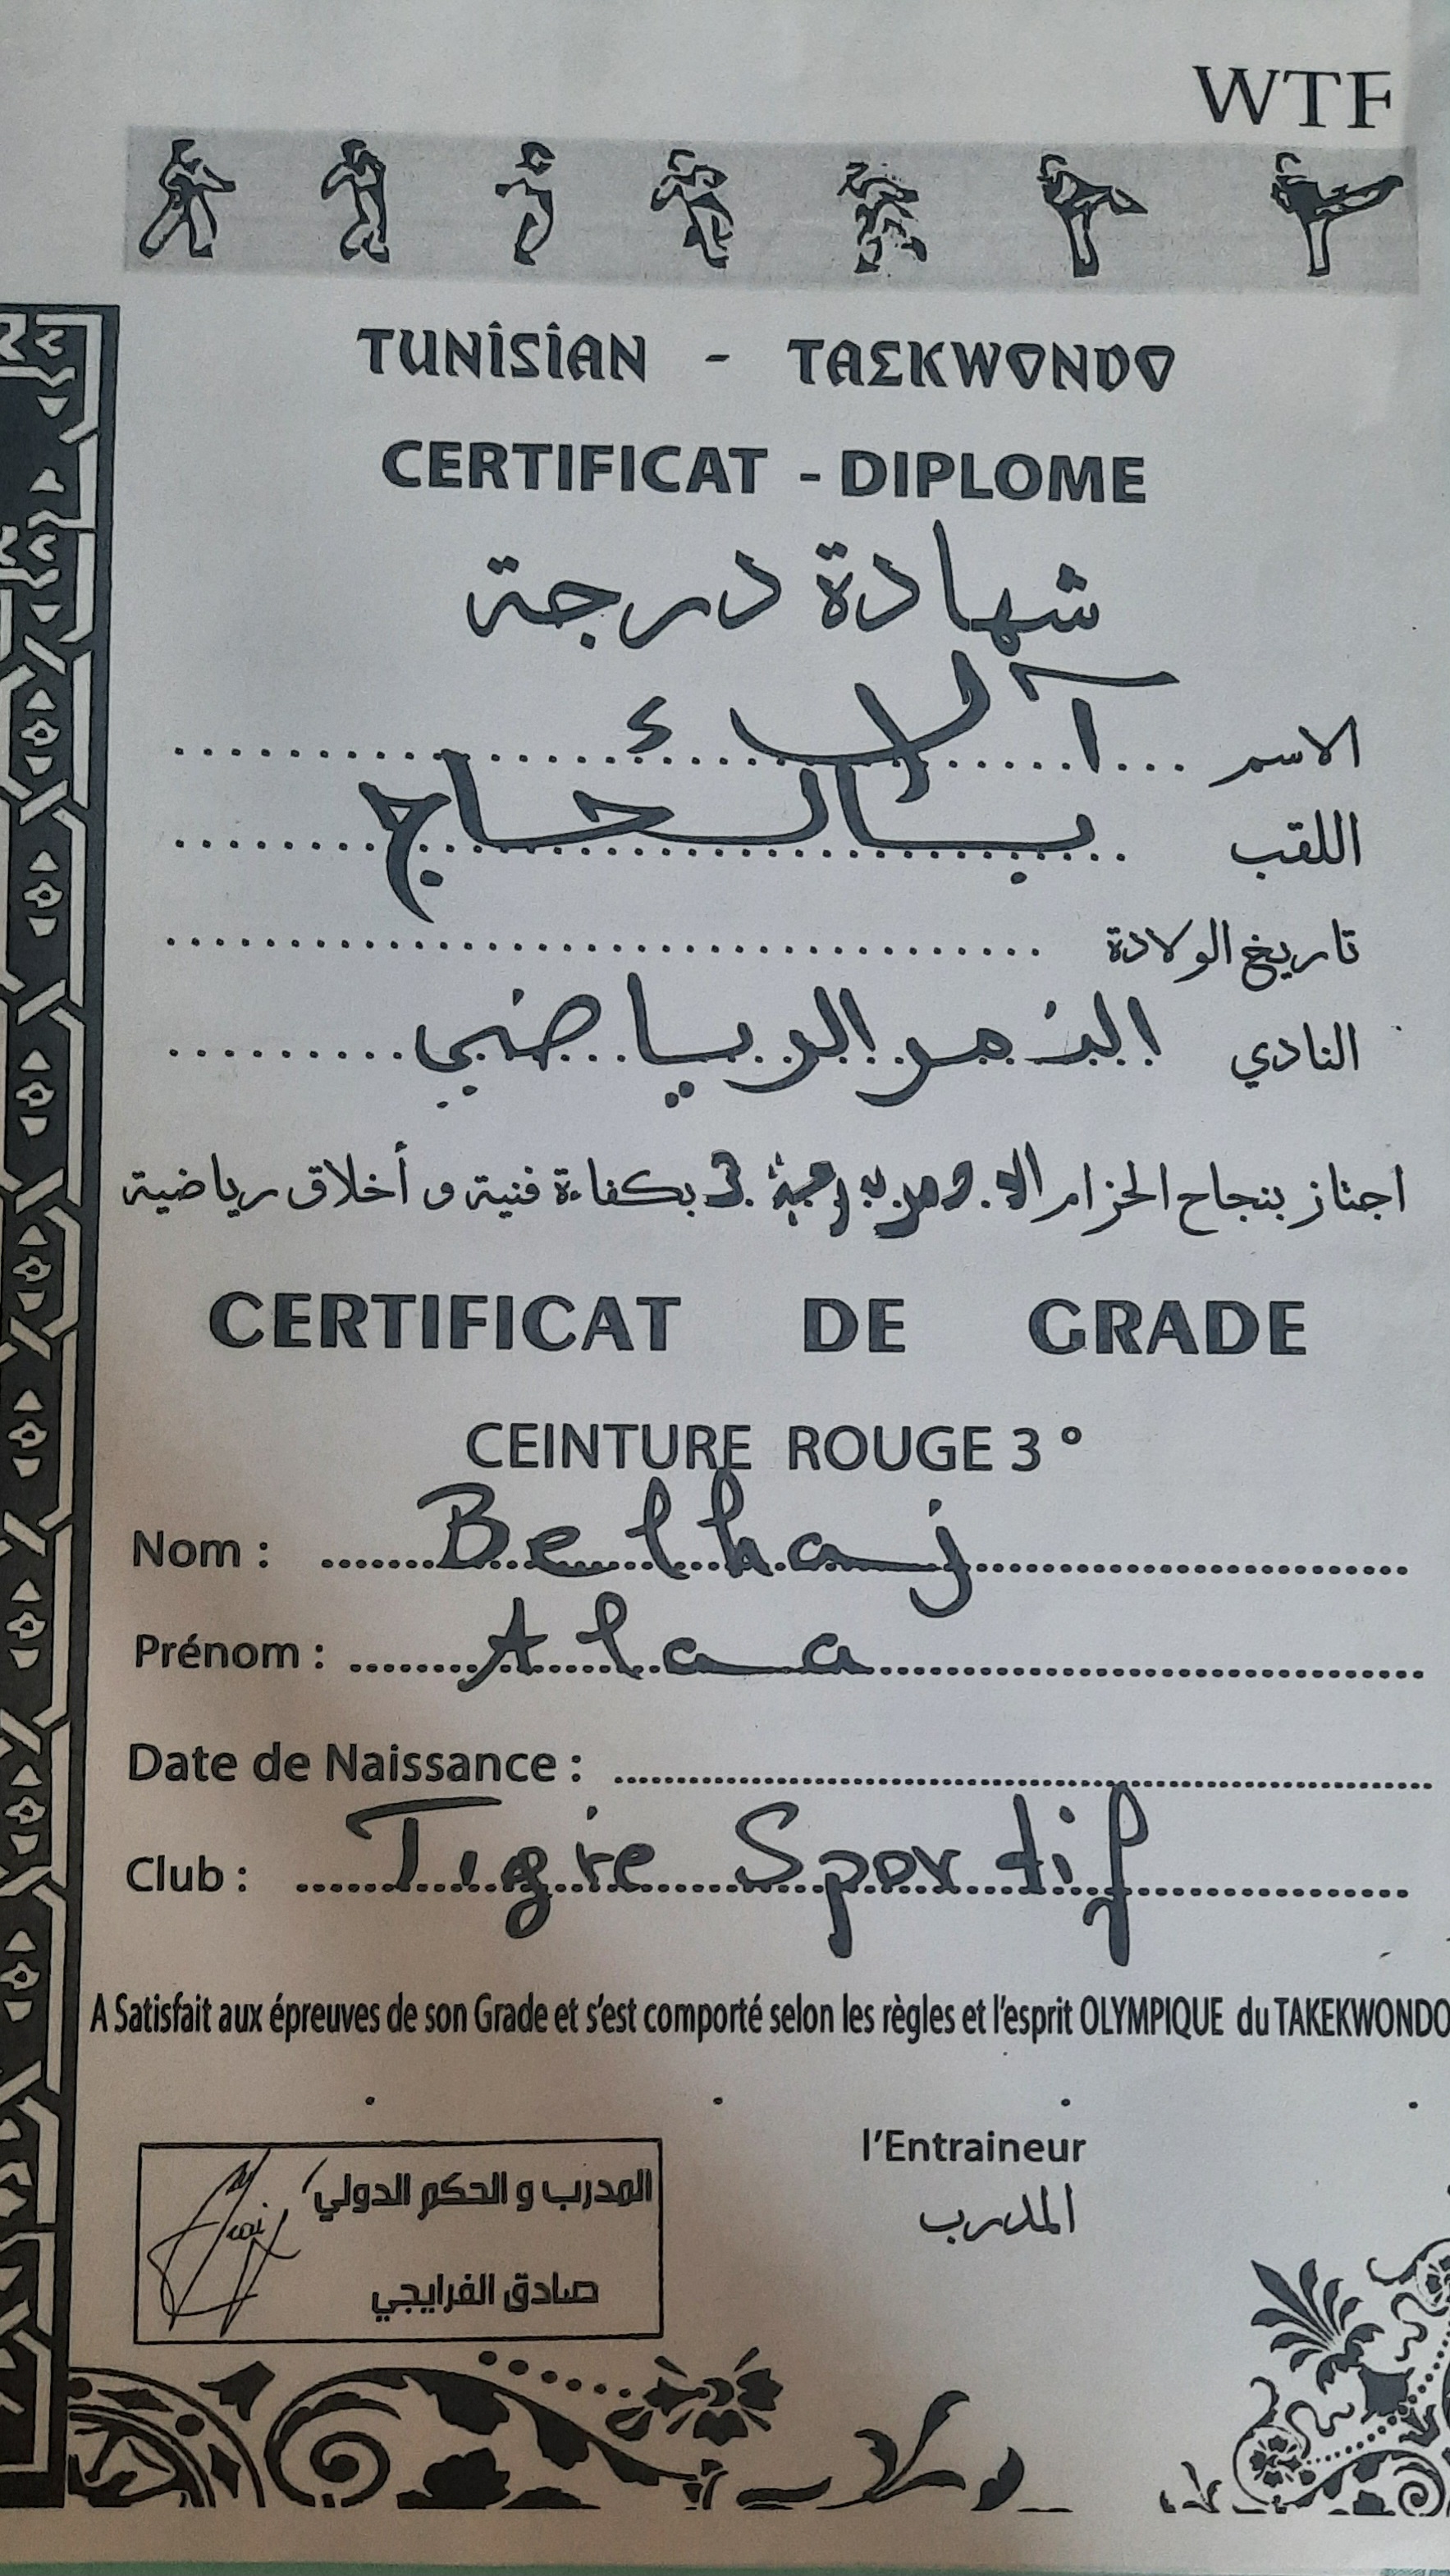 WTF
TUNISIAN - TAEKWONDO
CERTIFICAT - DIPLOME
شهادة درجة
الاسم آلاء
اللقب بالحاج
تاريخ الولادة
النادي النمر الرياضي
اجتاز بنجاح الحزام الاحمر درجة 3 بكفاءة فنية و أخلاق رياضية
CERTIFICAT DE GRADE
CEINTURE ROUGE 3°
Nom : Belhaj
Prénom : Alaa
Date de Naissance :
Club : Tigre Sportif
A Satisfait aux épreuves de son Grade et s'est comporté selon les règles et l'esprit OLYMPIQUE du TAKEKWONDO
l'Entraineur
المدرب
المدرب و الحكم الدولي
صادق الفرايجي